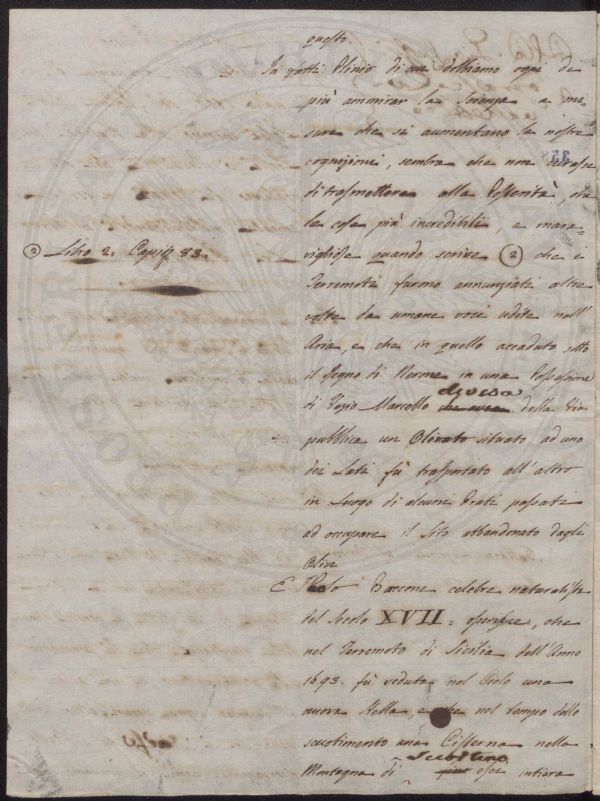 questo.
In fatti Plinio di cui dobbiamo ogni dì
più ammirar la Scienza a mi
sura che si aumentano le nostre
cognizioni, sembra che non
di trasmettere alla Posterità,
le cose più incredibili, e mara-
vigliose quando scrive (2) che i
Terremoti furono annunziati altre
volte da umane voci udite nell'
Aria, e che in quello accaduto sotto
il Regno di Nerone in una Possessione
di Vezio Marcello
della Via
pubblica un Oliveto situato ad uno
dei Lati fù trasportato all'altro
in luogo di alcuni Prati passati
ad occupare il Sito abbandonato dagli
Olivi
(2) Libro 2. Capit. 83.
E Paolo Boccone celebre naturalista
del Secolo XVII: che
nel Terremoto di Sicilia dell'Anno
1693. fù veduta nel Cielo una
nuova Stella, e che nel tempo dello
scuotimento una Cisterna nella
Montagna di intiera
35